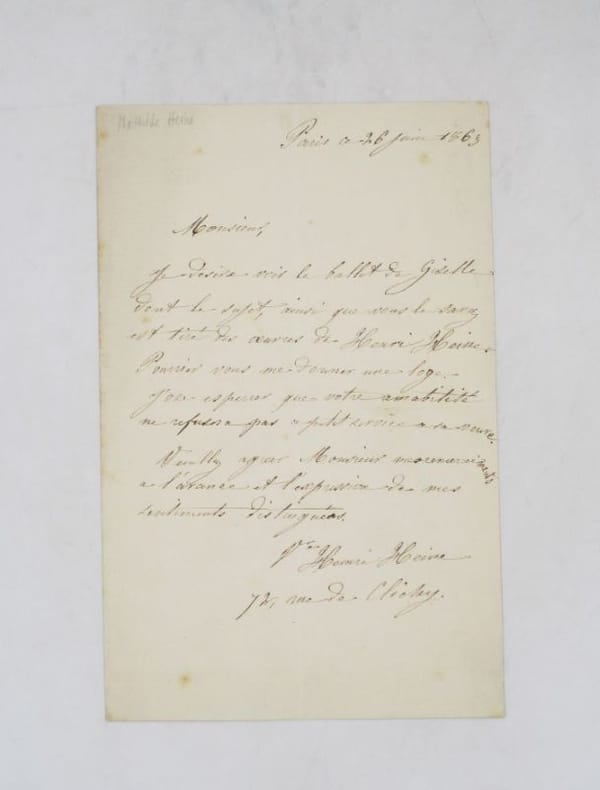 Mathilde Heine
Paris ce 26 juin 1863
Monsieur,
Je desire voir le ballet de Giselle
dont le sujet, ainsi que vous le savez
est tiré des œuvres de Henri Heine.
Pourriez vous me donner une loge.
J'ose esperer que votre amabilité
ne refusera pas ce petit service a sa veuve.
Veuillez agréer Monsieur mes remerciments
a l'avance et l'expression de mes
sentiments distingués.
Vve Henri Heine
72, rue de Clichy.